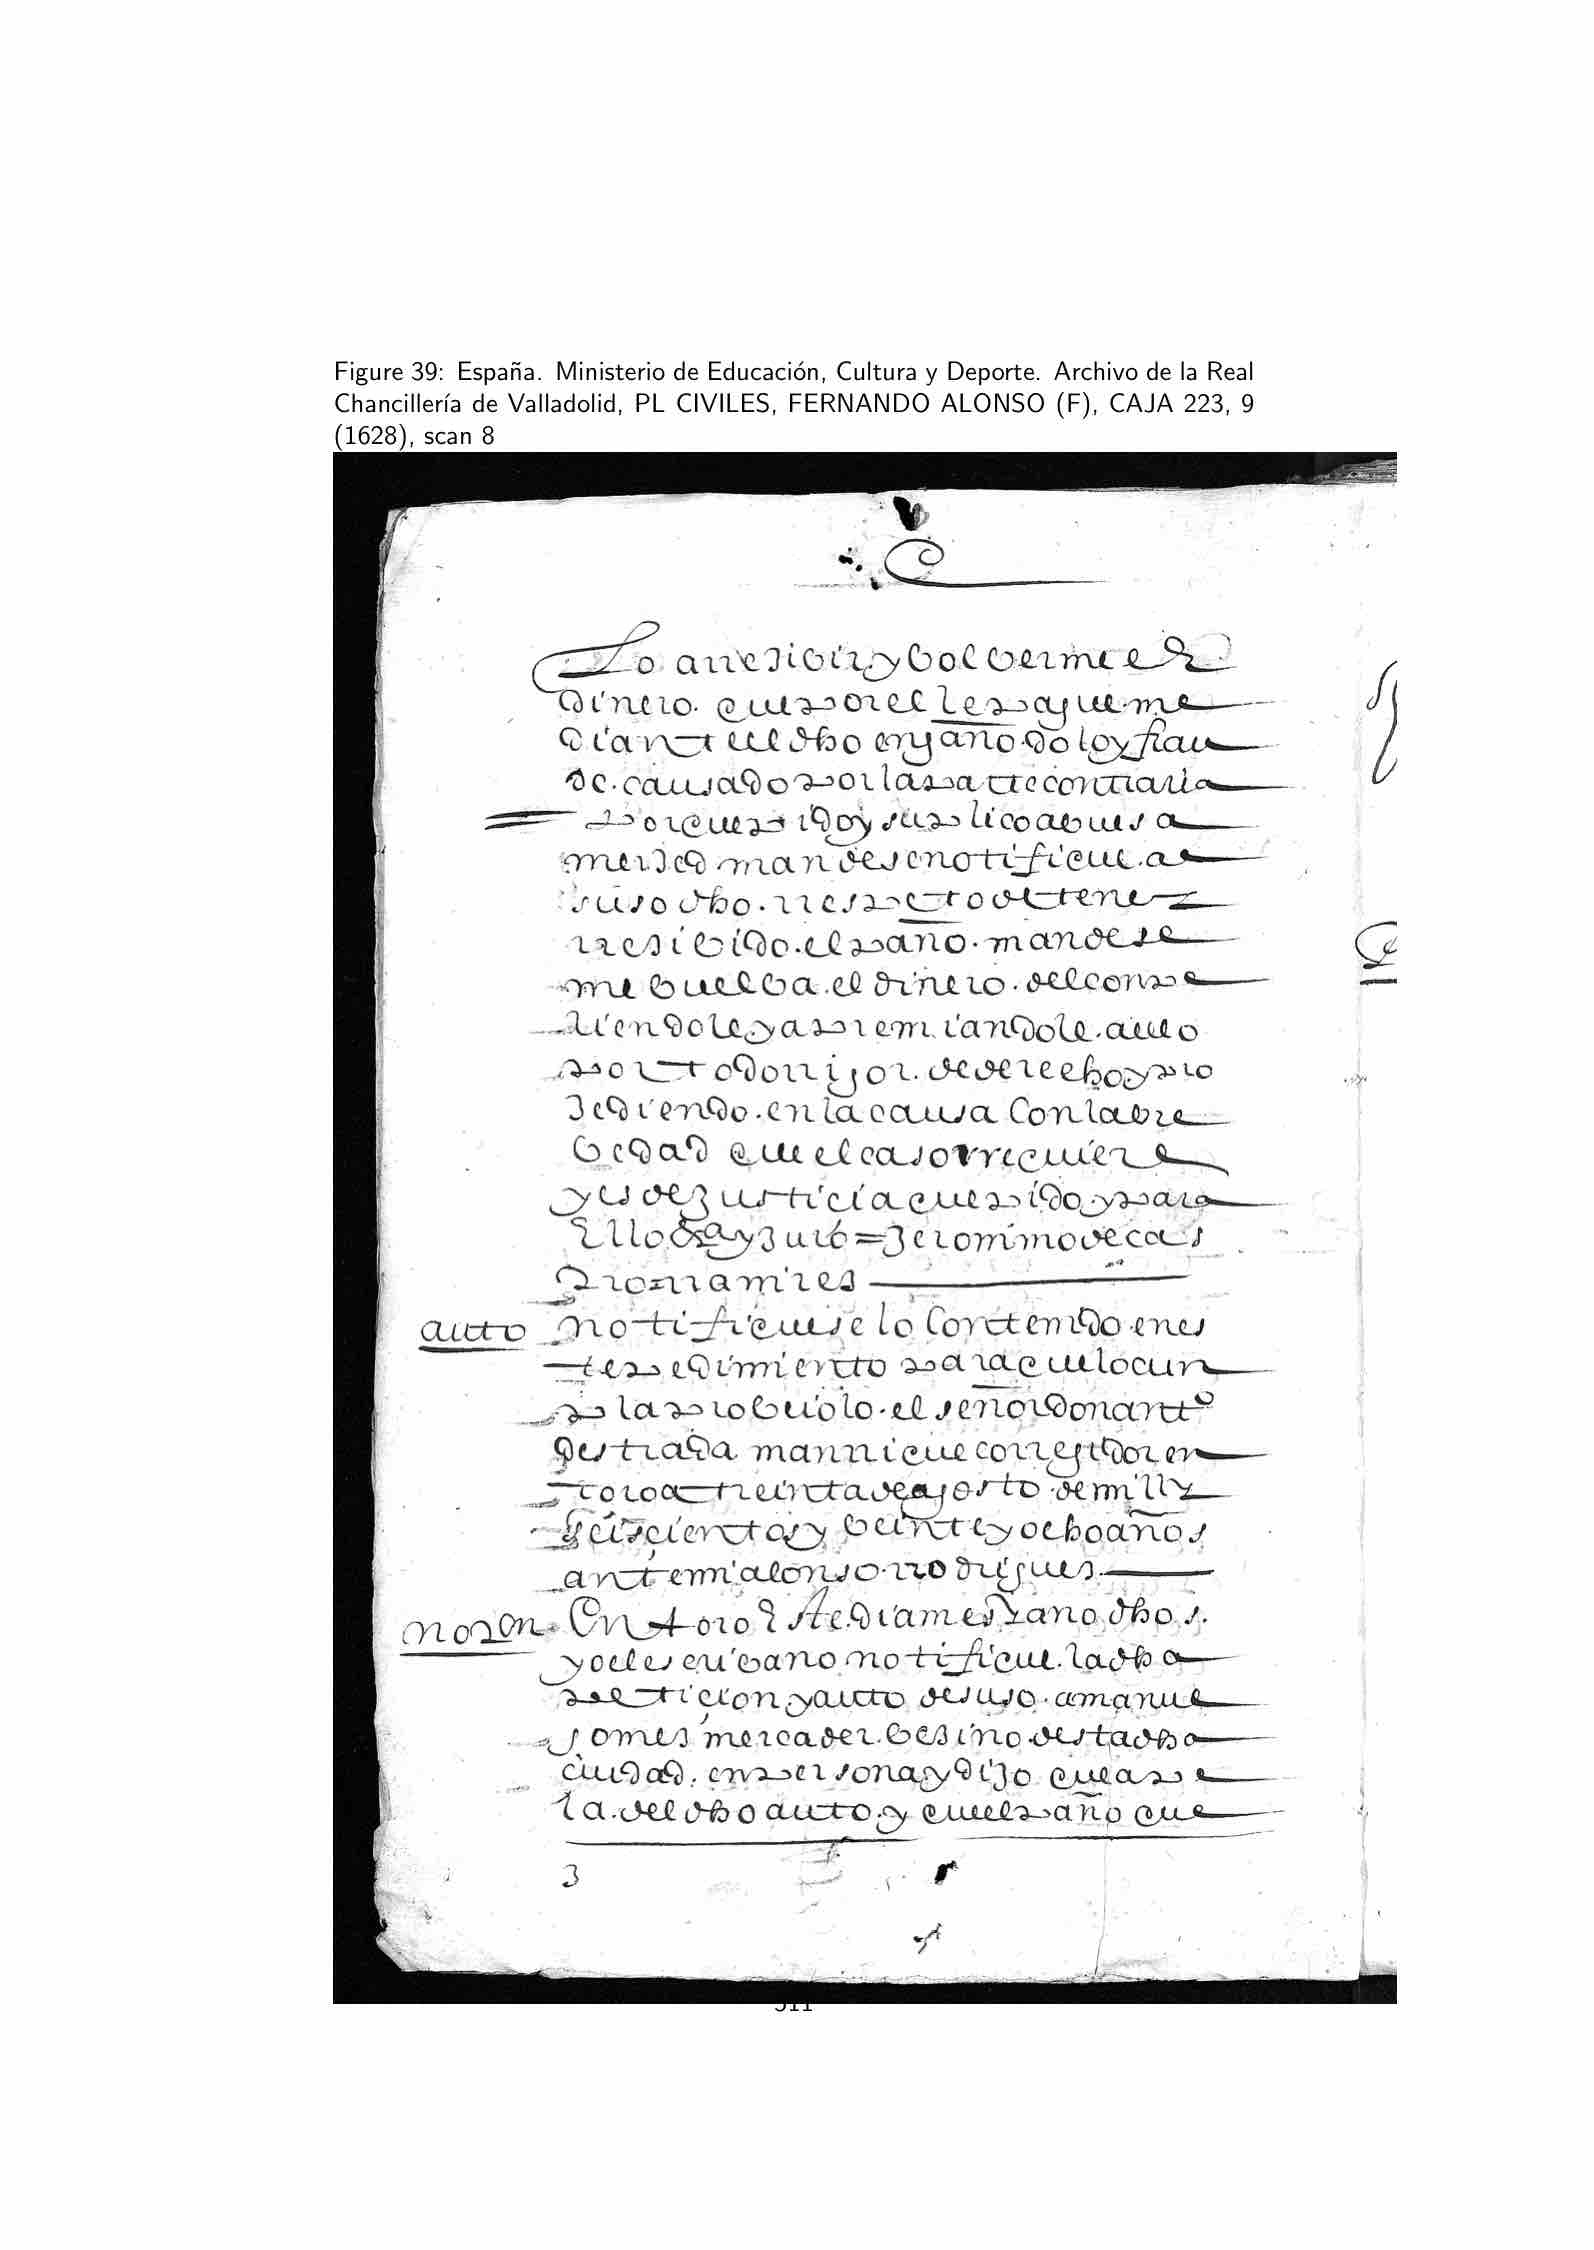 Figure 39: España. Ministerio de Educación, Cultura y Deporte. Archivo de la Real
Chancillería de Valladolid, PL CIVILES, FERNANDO ALONSO (F), CAJA 223, 9
(1628), scan 8
lo arresivir y bolberme el
dinero que por el le pague me
diante el dho engaño dolo y frau
de causado por la parte contraria
por que pido y suplico a vuesa
merzed mande se notifique al
suso dho rrespecto de tener
rresibido el paño mande se
me buelba el dinero del conpe
liendole y apremiandole a ello
por todo rrigor de derecho y pro
zediendo en la causa con la bre
bedad que el caso rrequiere
y es de justicia que pido y para
ello & y juro = jeronimo de cas
tro rramires
auto notifiquese lo contenido en es
te pedimiento para que lo cun
pla probeiolo el señor don antº
destrada manrrique corregidor en
toro a treinta de agosto de mill y
seiscientos y beinte y ocho años
ante mi alonso rrodrigues
noson En toro Este dia mes y ano dhos
yo el escribano notifique la dha
peticion y auto de suso a manuel
gomes mercader besino desta dha
ciudad en persona y dijo que ape
la del dho auto y quel paño que
3
511